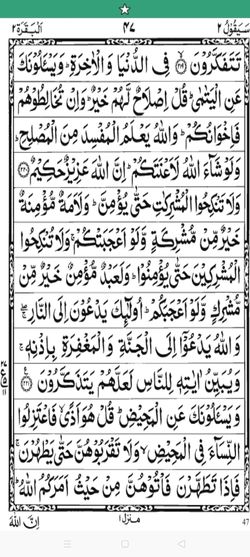 سَيَقُوۡلُ ٢ ٤٧ اَلۡبَقَرَة ٢
تَتَفَكَّرُوۡنَ ۙ‏﴿۲۱۹﴾ فِى الدُّنۡيَا وَالۡاٰخِرَةِ ؕ وَيَسۡـَٔـلُوۡنَكَ
عَنِ الۡيَتٰمٰى ؕ قُلۡ اِصۡلَاحٌ لَّهُمۡ خَيۡرٌ ؕ وَاِنۡ تُخَالِطُوۡهُمۡ
فَاِخۡوَانُكُمۡ ؕ وَاللّٰهُ يَعۡلَمُ الۡمُفۡسِدَ مِنَ الۡمُصۡلِحِ ؕ
وَلَوۡ شَآءَ اللّٰهُ لَاَعۡنَتَكُمۡ ؕ اِنَّ اللّٰهَ عَزِيۡزٌ حَكِيۡمٌ‏﴿۲۲۰﴾
وَلَا تَنۡكِحُوا الۡمُشۡرِكٰتِ حَتّٰى يُؤۡمِنَّ ؕ وَلَاَمَةٌ مُّؤۡمِنَةٌ
خَيۡرٌ مِّنۡ مُّشۡرِكَةٍ وَّلَوۡ اَعۡجَبَتۡكُمۡ ۚ وَلَا تُنۡكِحُوا
الۡمُشۡرِكِيۡنَ حَتّٰى يُؤۡمِنُوۡا ؕ وَلَعَبۡدٌ مُّؤۡمِنٌ خَيۡرٌ مِّنۡ
مُّشۡرِكٍ وَّلَوۡ اَعۡجَبَكُمۡ ؕ اُولٰٓئِكَ يَدۡعُوۡنَ اِلَى النَّارِ ۖ
وَاللّٰهُ يَدۡعُوۡٓا اِلَى الۡجَنَّةِ وَالۡمَغۡفِرَةِ بِاِذۡنِهٖ ۚ
وَيُبَيِّنُ اٰيٰتِهٖ لِلنَّاسِ لَعَلَّهُمۡ يَتَذَكَّرُوۡنَ‏﴿۲۲۱﴾
وَيَسۡـَٔـلُوۡنَكَ عَنِ الۡمَحِيۡضِ ؕ قُلۡ هُوَ اَذًى ۙ فَاعۡتَزِلُوا
النِّسَآءَ فِى الۡمَحِيۡضِ ۙ وَلَا تَقۡرَبُوۡهُنَّ حَتّٰى يَطۡهُرۡنَ ۚ
فَاِذَا تَطَهَّرۡنَ فَاۡتُوۡهُنَّ مِنۡ حَيۡثُ اَمَرَكُمُ اللّٰهُ ؕ
منزل ١ اِنَّ اللّٰهَ
47